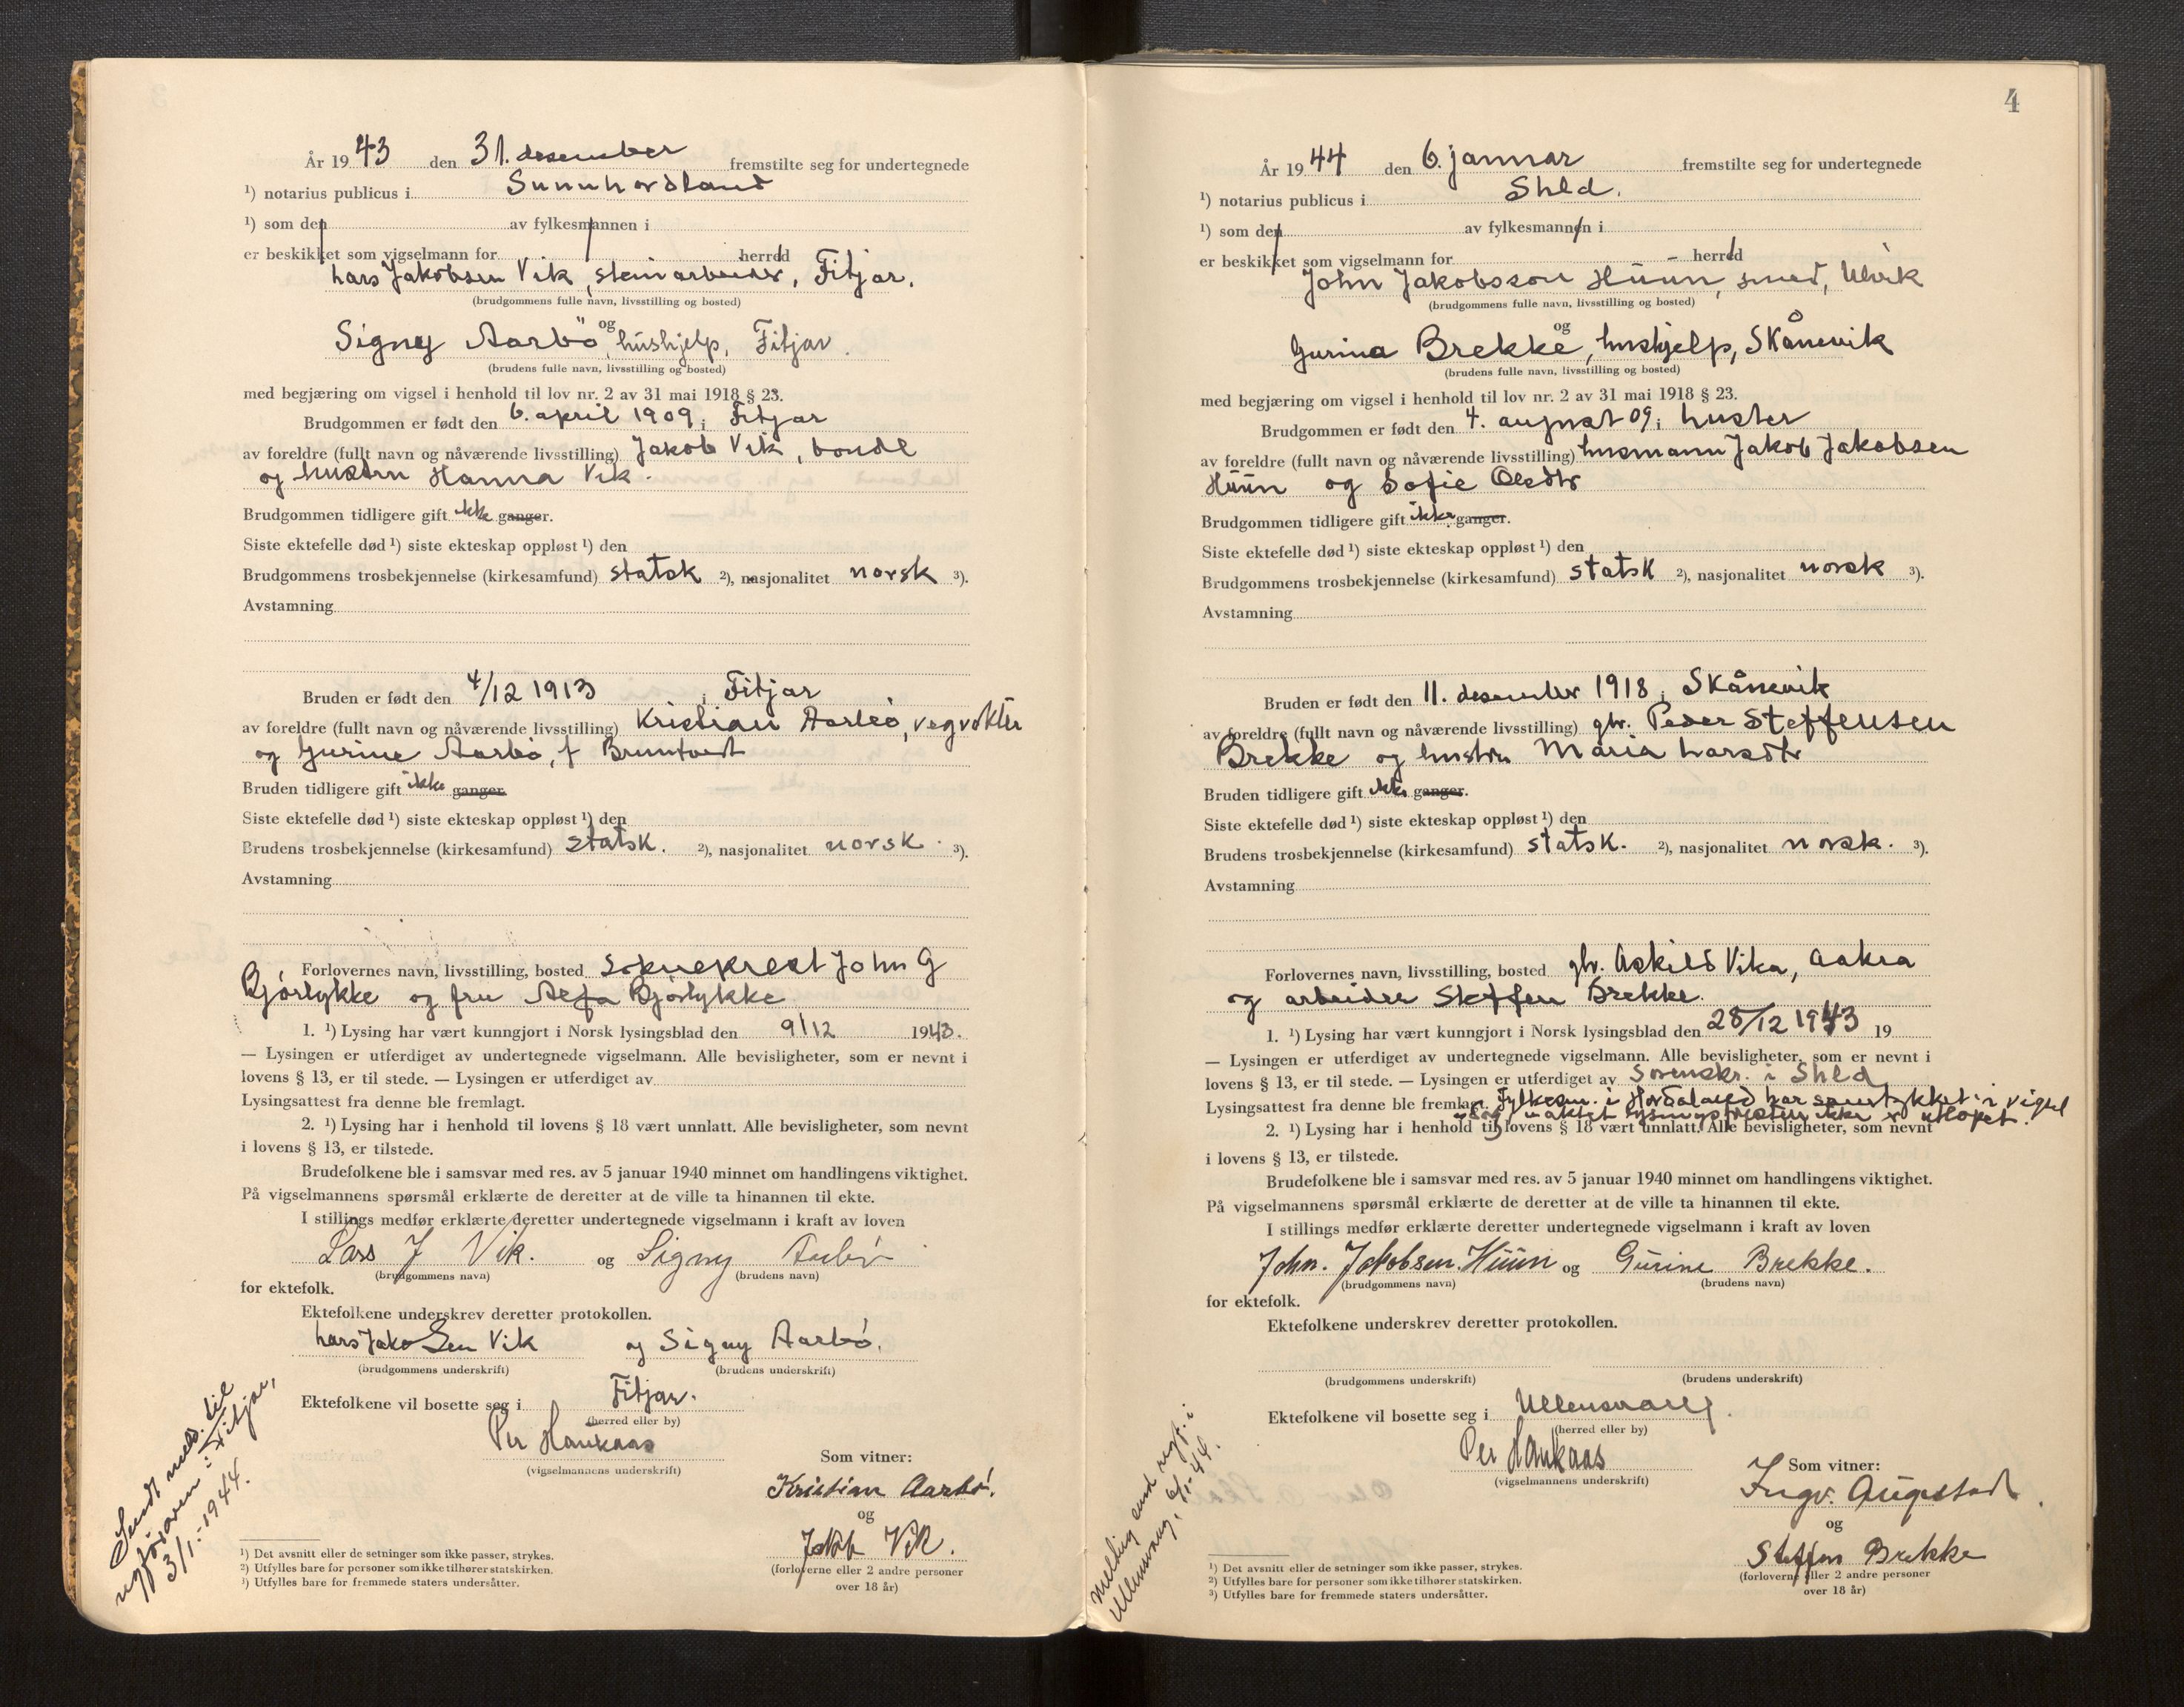 År 1943 den 31. desember fremstilte seg for undertegnede
¹) notarius publicus i Sunnhordland
¹) som den av fylkesmannen i
er beskikket som vigselmann for herred
Lars Jakobsen Vik, steinarbeider, Fitjar.
(brudgommens fulle navn, livsstilling og bosted)
og
Signy Aarbö, hushjelp, Fitjar.
(brudens fulle navn, livsstilling og bosted)
med begjæring om vigsel i henhold til lov nr. 2 av 31 mai 1918 § 23.
Brudgommen er født den 6. april 1909 i Fitjar
av foreldre (fullt navn og nåværende livsstilling) Jakob Vik, bonde
og hustru Hanna Vik.
Brudgommen tidligere gift ikke ganger.
Siste ektefelle død ¹) siste ekteskap oppløst ¹) den
Brudgommens trosbekjennelse (kirkesamfund) statsk ²), nasjonalitet norsk ³).
Avstamning
Bruden er født den 4/12 1913 i Fitjar
av foreldre (fullt navn og nåværende livsstilling) Kristian Aarbö, vegvokter
og Gurine Aarbö, f
Bruden tidligere gift ikke ganger
Siste ektefelle død ¹) siste ekteskap oppløst ¹) den
Brudens trosbekjennelse (kirkesamfund) statsk. ²), nasjonalitet norsk. ³).
Avstamning
Forlovernes navn, livsstilling, bosted Soknekrest John G
Bjórlykke og fru Bjórlykke
1. ¹) Lysing har vært kunngjort i Norsk lysingsblad den 9/12 1943.
— Lysingen er utferdiget av undertegnede vigselmann. Alle bevisligheter, som er nevnt i
lovens § 13, er til stede. — Lysingen er utferdiget av
Lysingsattest fra denne ble fremlagt.
2. ¹) Lysing har i henhold til lovens § 18 vært unnlatt. Alle bevisligheter, som nevnt
i lovens § 13, er tilstede.
Brudefolkene ble i samsvar med res. av 5 januar 1940 minnet om handlingens viktighet.
På vigselmannens spørsmål erklærte de deretter at de ville ta hinannen til ekte.
I stillings medfør erklærte deretter undertegnede vigselmann i kraft av loven
Lars J Vik. og Signy Aarbó
(brudgommens navn) (brudens navn)
for ektefolk.
Ektefolkene underskrev deretter protokollen.
Lars Jakobsen Vik og Signy Aarbó.
(brudgommens underskrift) (brudens underskrift)
Ektefolkene vil bosette seg i Fitjar.
(herred eller by)
Per Haukaas
(vigselmannens underskrift)
Som vitner:
Kristian Aarbó.
og
Jakob Vik.
(forloverne eller 2 andre personer
over 18 år)
Sendt meld. til
regföraren i Fitjar,
3/1.-1944.
¹) Det avsnitt eller de setninger som ikke passer, strykes.
²) Utfylles bare for personer som ikke tilhører statskirken.
³) Utfylles bare for fremmede staters undersåtter.
4
År 1944 den 6. januar fremstilte seg for undertegnede
¹) notarius publicus i Shld.
¹) som den av fylkesmannen i
er beskikket som vigselmann for herred
John Jakobsson Hüün, smed, Ulvik
(brudgommens fulle navn, livsstilling og bosted)
og
Gurina Brekke, hushjelp, Skånevik
(brudens fulle navn, livsstilling og bosted)
med begjæring om vigsel i henhold til lov nr. 2 av 31 mai 1918 § 23.
Brudgommen er født den 4. august 09 i Huster
av foreldre (fullt navn og nåværende livsstilling) husmann Jakob Jakobsen
Hüün og Sofie Olsdtr
Brudgommen tidligere gift ikke ganger.
Siste ektefelle død ¹) siste ekteskap oppløst ¹) den
Brudgommens trosbekjennelse (kirkesamfund) statsk ²), nasjonalitet norsk ³).
Avstamning
Bruden er født den 11. desember 1918 i Skånevik
av foreldre (fullt navn og nåværende livsstilling) gbr. Peder Steffensen
Brekke og hustru Maria Larsdtr
Bruden tidligere gift ikke ganger.
Siste ektefelle død ¹) siste ekteskap oppløst ¹) den
Brudens trosbekjennelse (kirkesamfund) statsk. ²), nasjonalitet norsk. ³).
Avstamning
Forlovernes navn, livsstilling, bosted gbr. Askild Vika, Aakra
og arbeider Steffen Brekke.
1. ¹) Lysing har vært kunngjort i Norsk lysingsblad den 28/12 1943 19
— Lysingen er utferdiget av undertegnede vigselmann. Alle bevisligheter, som er nevnt i
lovens § 13, er til stede. — Lysingen er utferdiget av Sorenskr. i Shld
Lysingsattest fra denne ble fremlagt. Fylkesm. i Hordaland har samtykket i vigsel
uaktet lysningsfristen ikke er utlöpet.
2. ¹) Lysing har i henhold til lovens § 18 vært unnlatt. Alle bevisligheter, som nevnt
i lovens § 13, er tilstede.
Brudefolkene ble i samsvar med res. av 5 januar 1940 minnet om handlingens viktighet.
På vigselmannens spørsmål erklærte de deretter at de ville ta hinannen til ekte.
I stillings medfør erklærte deretter undertegnede vigselmann i kraft av loven
John. Jakobsen. Hüün og Gurine Brekke.
(brudgommens navn) (brudens navn)
for ektefolk.
Ektefolkene underskrev deretter protokollen.
(brudgommens underskrift) (brudens underskrift)
Ektefolkene vil bosette seg i Ullensvang.
(herred eller by)
Per Haukaas
(vigselmannens underskrift)
Som vitner:
Ingv. Augestad.
og
Steffen Brekke
(forloverne eller 2 andre personer
over 18 år)
Melding send regf. i
Ullensvang, 6/1-44.
¹) Det avsnitt eller de setninger som ikke passer, strykes.
²) Utfylles bare for personer som ikke tilhører statskirken.
³) Utfylles bare for fremmede staters undersåtter.